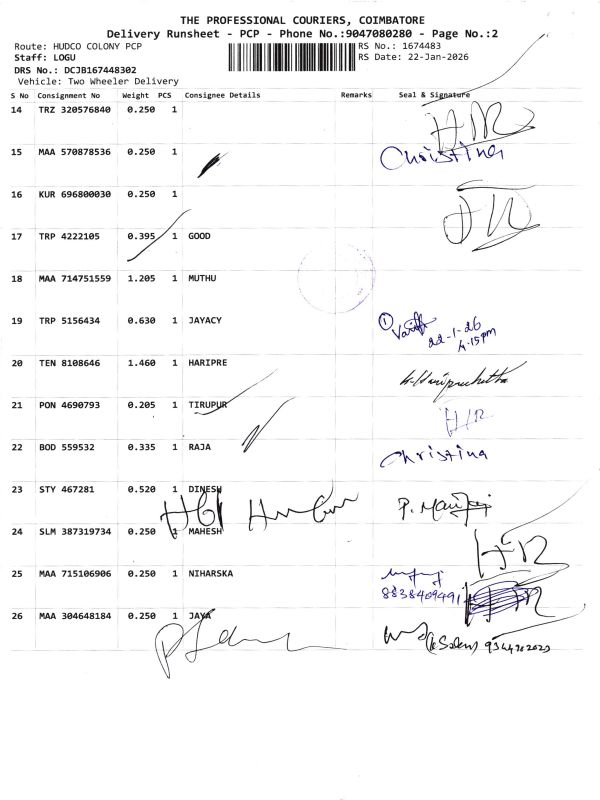 THE PROFESSIONAL COURIERS, COIMBATORE
Delivery Runsheet - PCP - Phone No.:9047080280 - Page No.:2
Route: HUDCO COLONY PCP RS No.: 1674483
Staff: LOGU RS Date: 22-Jan-2026
DRS No.: DCJB167448302
Vehicle: Two Wheeler Delivery
S No Consignment No Weight PCS Consignee Details Remarks Seal & Signature
14 TRZ 320576840 0.250 1 HR
15 MAA 570878536 0.250 1 Christina
16 KUR 696800030 0.250 1 HR
17 TRP 4222105 0.395 1 GOOD
18 MAA 714751559 1.205 1 MUTHU
19 TRP 5156434 0.630 1 JAYACY 1
22-1-26
4.15pm
20 TEN 8108646 1.460 1 HARIPRE
21 PON 4690793 0.205 1 TIRUPUR HR
22 BOD 559532 0.335 1 RAJA Christina
23 STY 467281 0.520 1 DINESH
24 SLM 387319734 0.250 1 MAHESH HR
25 MAA 715106906 0.250 1 NIHARSKA
8838409491 HR
26 MAA 304648184 0.250 1 JAYA